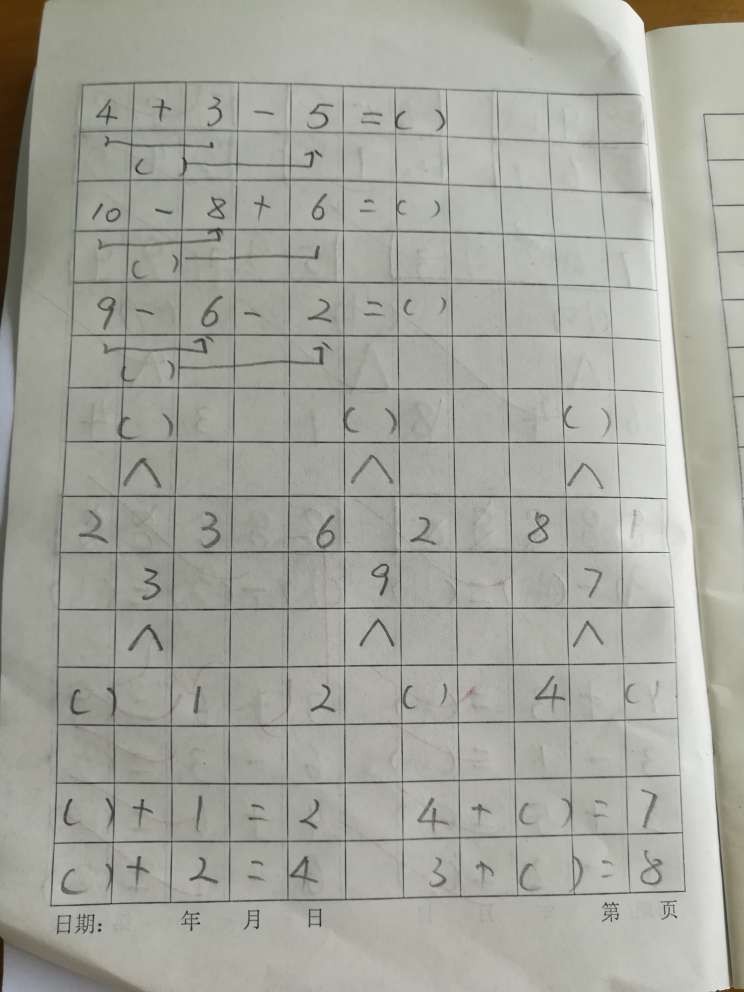 4 + 3 - 5 = ( )
( )
10 - 8 + 6 = ( )
( )
9 - 6 - 2 = ( )
( )
( ) ( ) ( )
∧ ∧ ∧
2 3 6 2 8 1
3 9 7
∧ ∧ ∧
( ) 1 2 ( ) 4 ( )
( ) + 1 = 2 4 + ( ) = 7
( ) + 2 = 4 3 + ( ) = 8
日期: 年 月 日 第 页